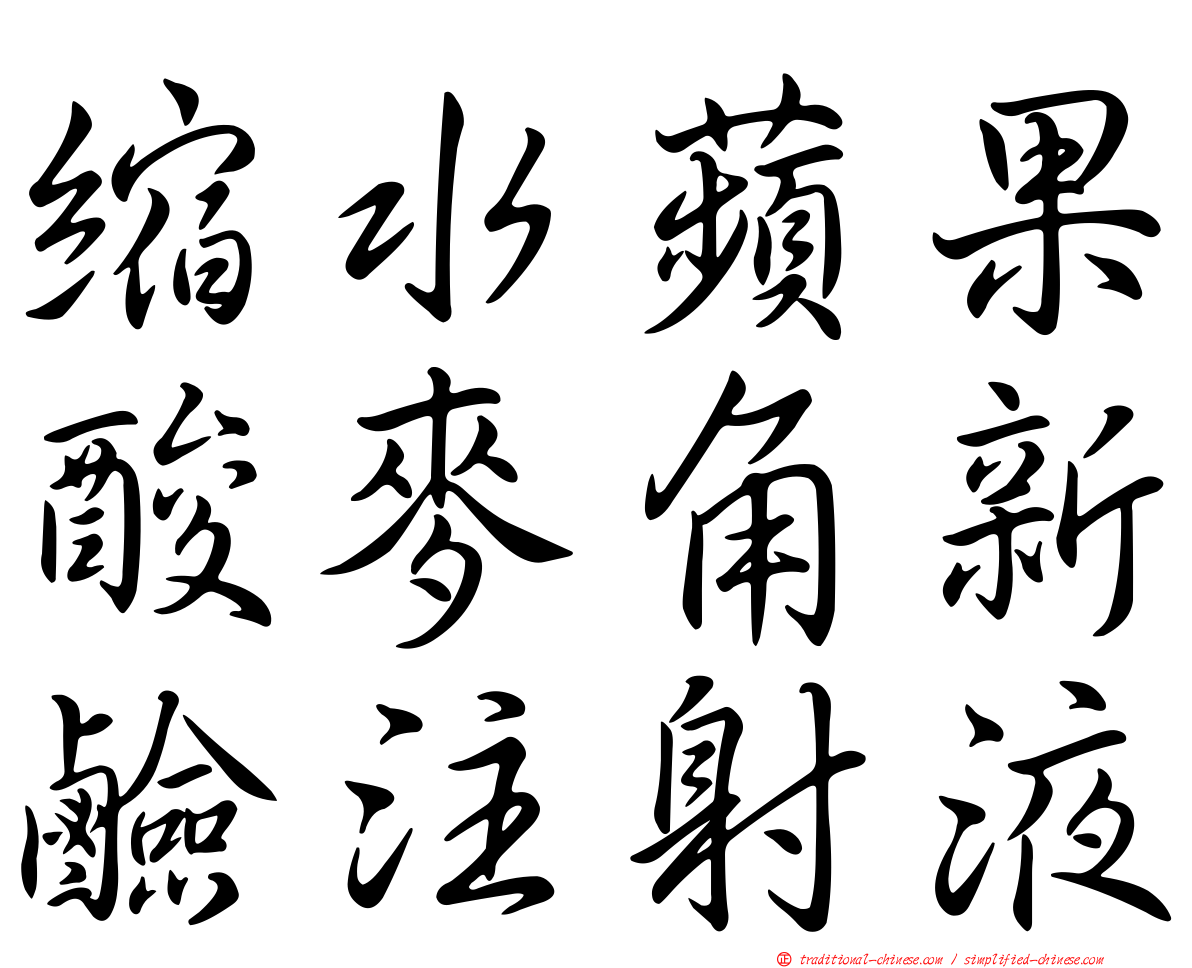 縮水蘋果
酸麥角新
鹼注射液
正 traditional-chinese.com / simplified-chinese.com